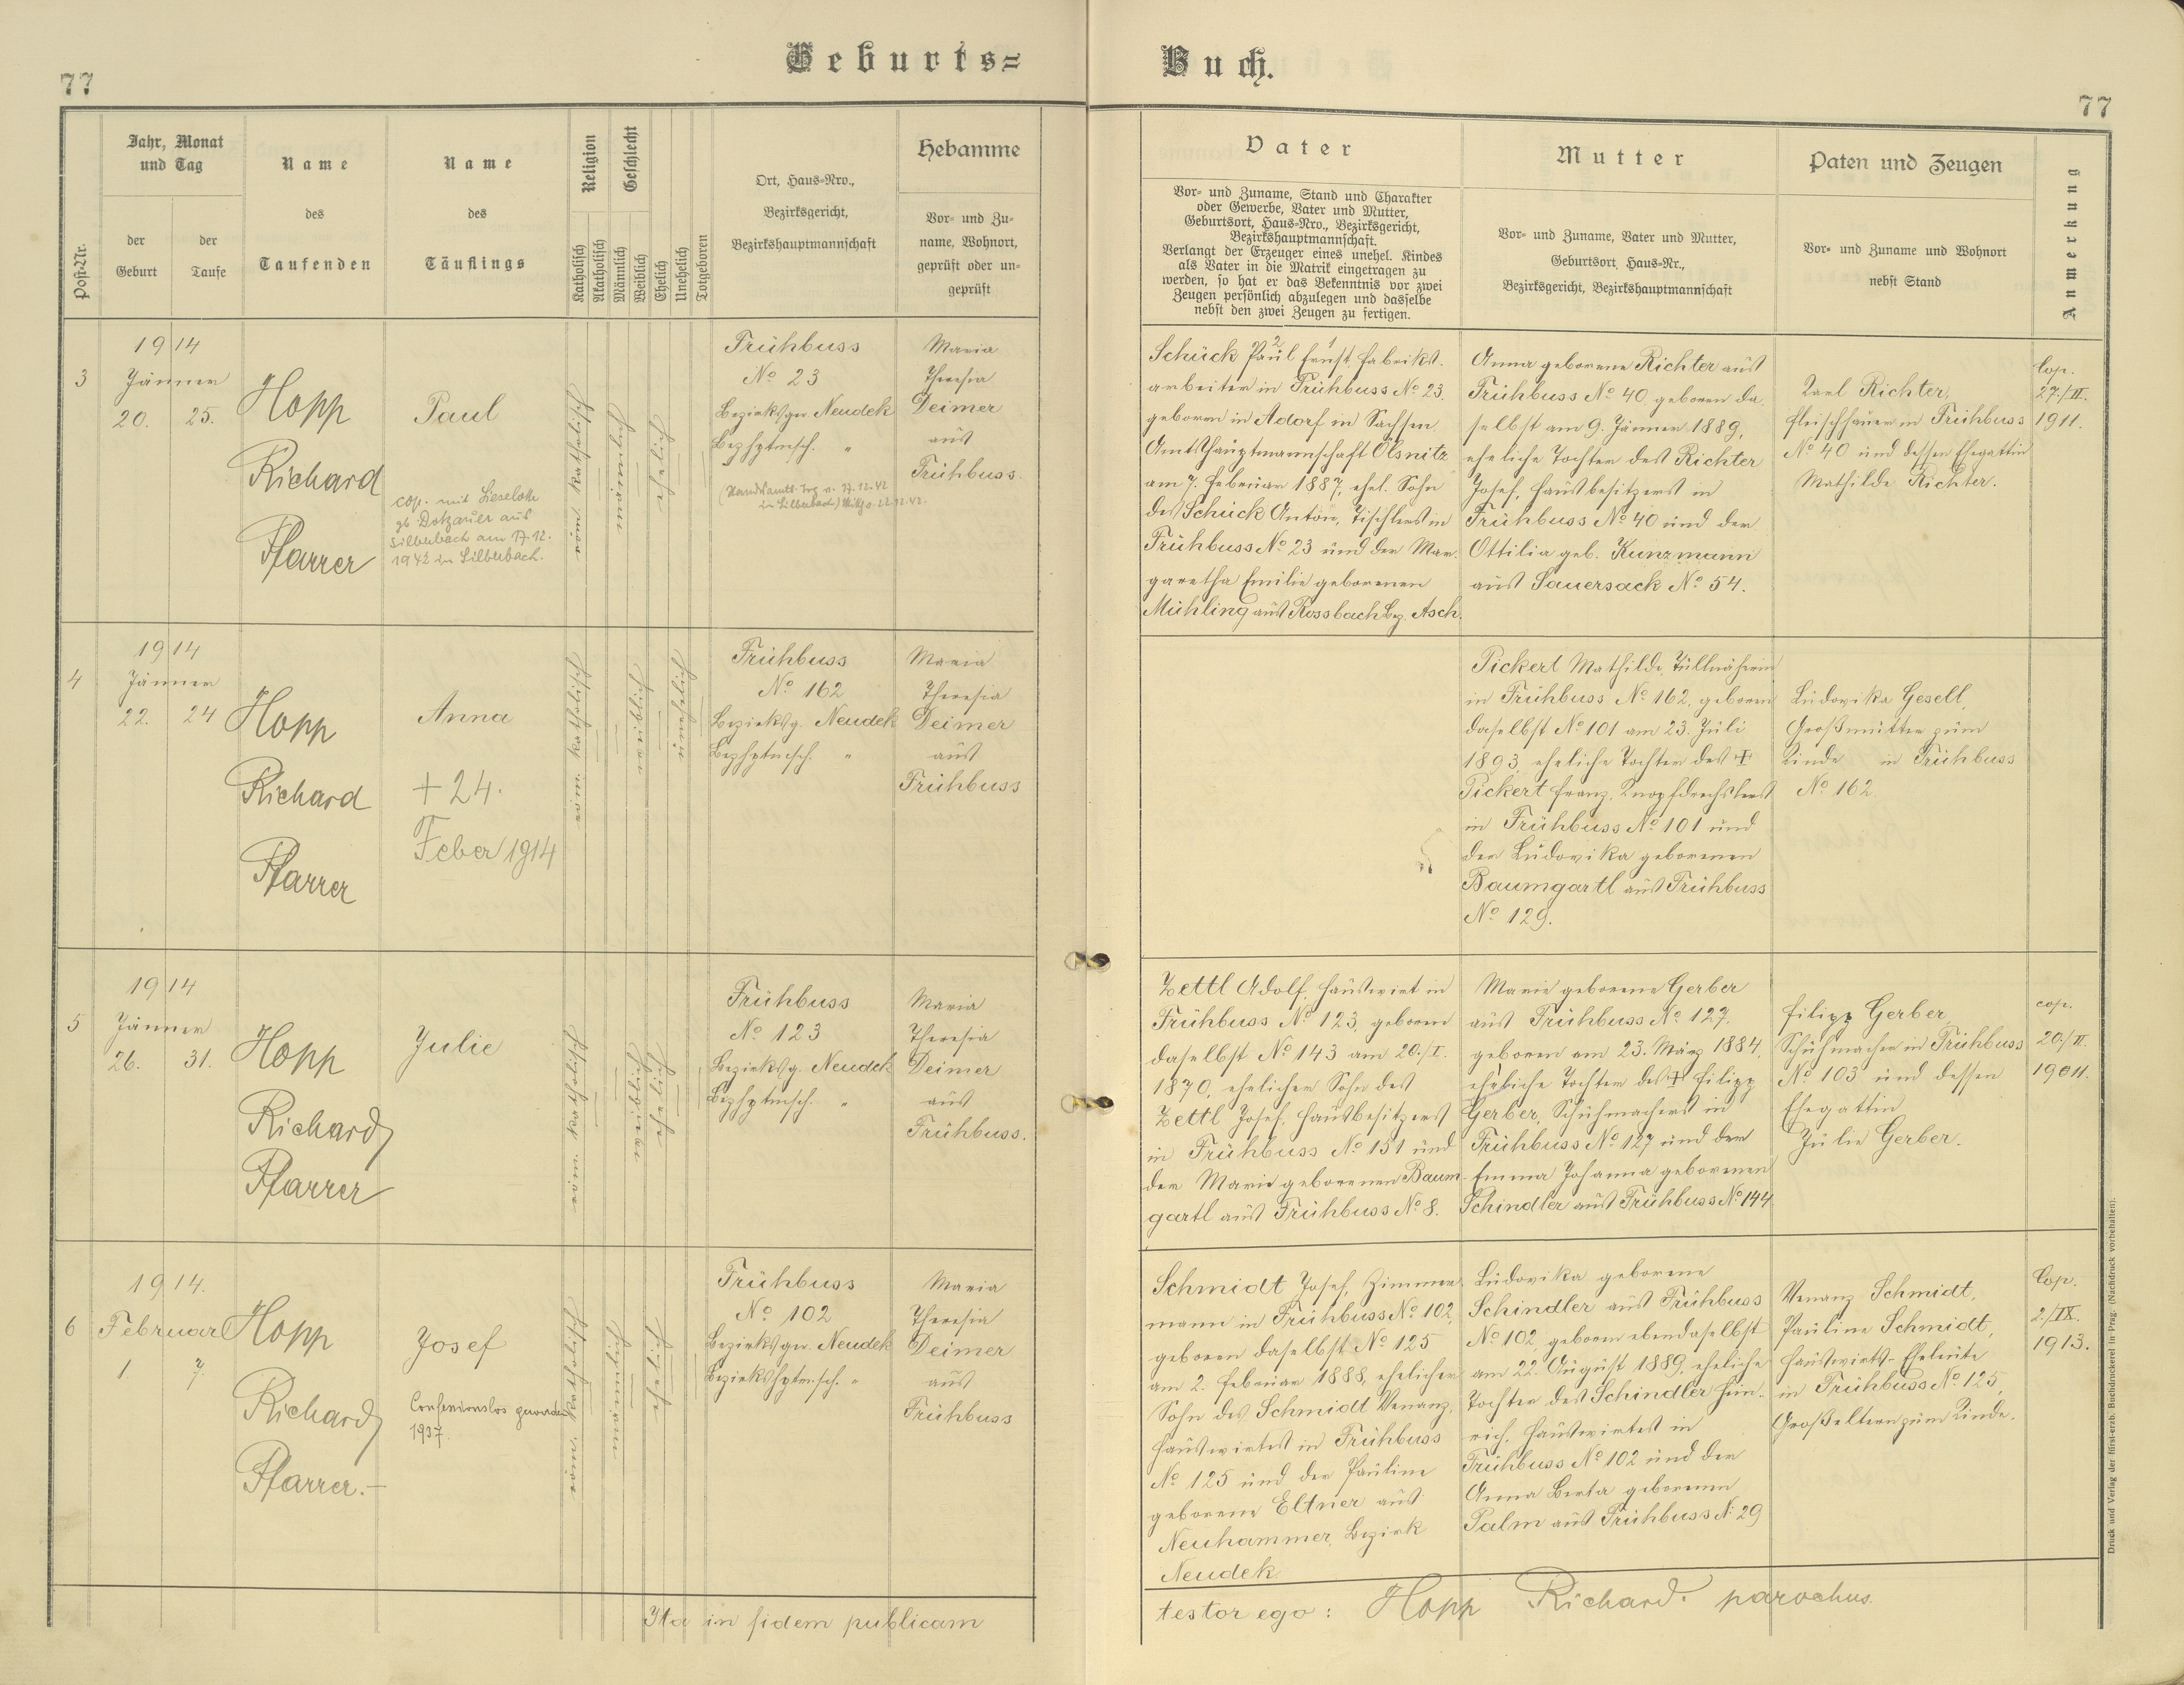 77
Geburts=
Buch.
77
Post-Nr.
Jahr, Monat
und Tag
der
Geburt
der
Taufe
Name
des
Taufenden
Name
des
Täuflings
Religion
Katholisch
Akatholisch
Geschlecht
Männlich
Weiblich
Ehelich
Unehelich
Totgeboren
Ort, Haus-Nro.,
Bezirksgericht,
Bezirkshauptmannschaft
Hebamme
Vor- und Zu-
name, Wohnort,
geprüft oder un-
geprüft
Vater
Vor- und Zuname, Stand und Charakter
oder Gewerbe, Vater und Mutter,
Geburtsort, Haus-Nro., Bezirksgericht,
Bezirkshauptmannschaft.
Verlangt der Erzeuger eines unehel. Kindes
als Vater in die Matrik eingetragen zu
werden, so hat er das Bekenntnis vor zwei
Zeugen persönlich abzulegen und dasselbe
nebst den zwei Zeugen zu fertigen.
Mutter
Vor- und Zuname, Vater und Mutter,
Geburtsort, Haus-Nr.,
Bezirksgericht, Bezirkshauptmannschaft
Paten und Zeugen
Vor- und Zuname und Wohnort
nebst Stand
Anmerkung
3
1914
Jänner
20. 25.
Hopp
Richard
Pfarrer
Paul
cop. mit Lieselotte
gb Dotzauer aus
Silberbach am 17.12.
1942 in Silberbach.
röm. katholisch
Frühbuss
No 23
Bezirksger Neudek
Bezhptmsch. "
17.12.42
in Silberbach) 22.12.42.
Maria
Theresia
Deimer
aus
Frühbuss.
Schück Paul Ernst, Fabriks-
2 1
arbeiter in Frühbuss No 23.
geboren in Adorf in Sachsen
Amtshauptmannschaft Ölsnitz
am 7. Februar 1887, ehel. Sohn
des Schück Anton, Tischlers in
Frühbuss No 23 und der Mar-
garetha Emilie geborenen
Mühling aus Rossbach Bez. Asch.
Anna geborene Richter aus
Frühbuss No 40, geboren da
selbst am 9. Jänner 1889,
eheliche Tochter des Richter
Josef, Hausbesitzers in
Frühbuss No 40 und der
Ottilia geb. Kunzmann
aus Sauersack No 54.
Karl Richter,
Fleischhauer in Frühbuss
No 40 und dessen Ehegattin
Mathilde Richter.
Cop.
27./II.
1911.
4
1914
Jänner
22. 24
Hopp
Richard
Pfarrer
Anna
+ 24.
Feber 1914
röm. katholisch
weiblich
unehelich
Frühbuss
No 162
Bezirksg. Neudek
Bezhptmsch. "
Maria
Theresia
Deimer
aus
Frühbuss
Pickert Mathilde, Tüllnäherin
in Frühbuss No 162, geboren
daselbst No 101 am 23. Juli
1893, eheliche Tochter des +
Pickert Franz, Knopfdrechslers
in Frühbuss No 101 und
der Ludovika geborenen
Baumgartl aus Frühbuss
No 129.
Ludovika Gesell,
Großmutter zum
Kinde in Frühbuss
No 162.
5
1914
Jänner
26. 31.
Hopp
Richard
Pfarrer
Julie
röm. katholisch
Frühbuss
No 123
Bezirksg. Neudek
Bezhptmsch. "
Maria
Theresia
Deimer
aus
Frühbuss.
Zettl Adolf, Hauswirt in
Frühbuss No 123, geboren
daselbst No 143 am 20./I.
1870, ehelicher Sohn des
Zettl Josef, Hausbesitzers
in Frühbuss No 151 und
der Marie geborenen Baum-
gartl aus Frühbuss No 8.
Marie geborene Gerber
aus Frühbuss No 127.
geboren am 23. März 1884,
eheliche Tochter des + Filipp
Gerber, Schuhmachers in
Frühbuss No 127 und der
Emma Johanna geborenen
Schindler aus Frühbuss No 144
Filipp Gerber,
Schuhmacher in Frühbuss
No 103 und dessen
Ehegattin
Julie Gerber.
cop.
20./II.
6
1914.
Februar
1. 7.
Hopp
Richard
Pfarrer.-
Josef
Confessionslos geworden
1937.
röm. katholisch
Frühbuss
No 102
Bezirksger. Neudek
Bezirkshptm.sch. "
Maria
Theresia
Deimer
aus
Frühbuss
Schmidt Josef, Zimmer-
mann in Frühbuss No 102,
geboren daselbst No 125
am 2. Februar 1888, ehelicher
Sohn des Schmidt Venanz,
Hauswirtes in Frühbuss
No 125 und der Pauline
geborene Eltner aus
Neuhammer, Bezirk
Neudek.
Ludovika geborene
Schindler aus Frühbuss
No 102, geboren ebendaselbst
am 22. August 1889, eheliche
Tochter des Schindler Hein-
rich, Hauswirtes in
Frühbuss No 102 und der
Anna Berta geborenen
Palm aus Frühbuss No 29
Venanz Schmidt,
Pauline Schmidt,
Hauswirts-Eheleute
in Frühbuss No 125,
Großeltern zum Kinde.
Cop.
2./IX.
1913.
Ita in fidem publicam
testor ego: Hopp Richard. parochus.
Druck und Verlag der fürst-erzb. Buchdruckerei in Prag. (Nachdruck vorbehalten).